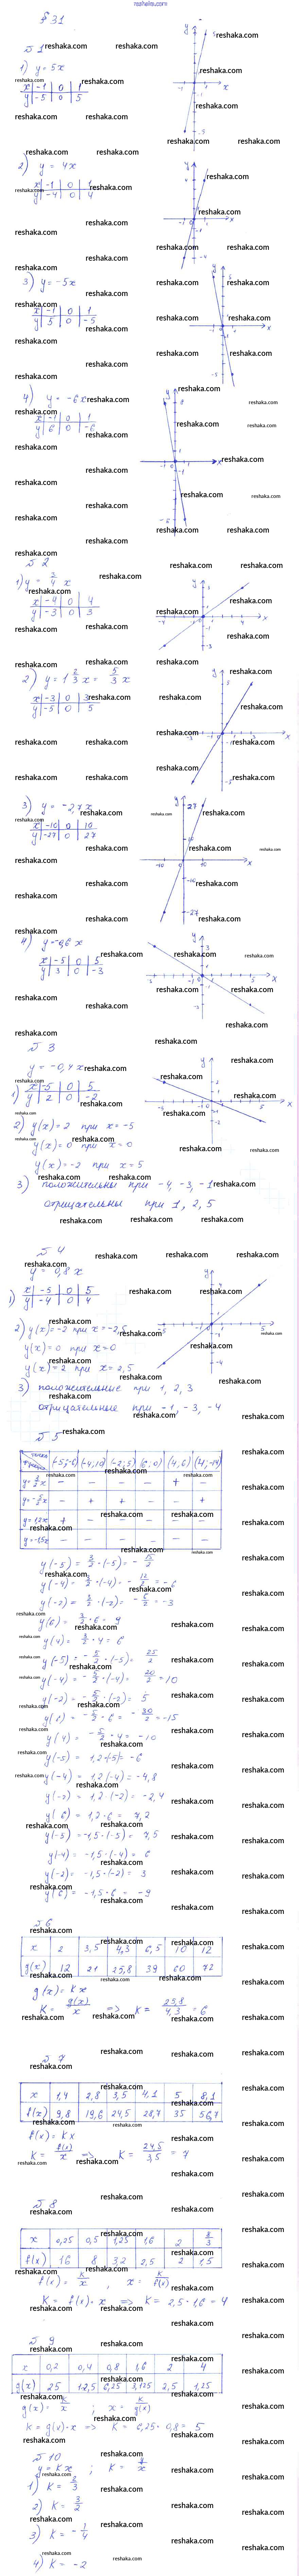 reshaka.com
§ 31
№ 1
1) y = 5x
x | -1 | 0 | 1
y | -5 | 0 | 5
2) y = 4x
x | -1 | 0 | 1
y | -4 | 0 | 4
3) y = -5x
x | -1 | 0 | 1
y | 5 | 0 | -5
4) y = -6x
x | -1 | 0 | 1
y | 6 | 0 | -6
№ 2
1) y = 3/4 x
x | -4 | 0 | 4
y | -3 | 0 | 3
2) y = 1 2/3 x = 5/3 x
x | -3 | 0 | 3
y | -5 | 0 | 5
3) y = -2,7x
x | -10 | 0 | 10
y | -27 | 0 | 27
4) y = -0,6 x
x | -5 | 0 | 5
y | 3 | 0 | -3
№ 3
y = -0,4x
1) x | -5 | 0 | 5
y | 2 | 0 | -2
2) y(x) = 2 при x = -5
y(x) = 0 при x = 0
y(x) = -2 при x = 5
3) положительны при -4, -3, -1
отрицательны при 1, 2, 5
№ 4
y = 0,8 x
1) x | -5 | 0 | 5
y | -4 | 0 | 4
2) y(x) = -2 при x = -2,5
y(x) = 0 при x = 0
y(x) = 2 при x = 2,5
3) положительные при 1, 2, 3
отрицательные при -1, -3, -4
№ 5
y(-5) = 3/2 · (-5) = - 15/2
y(-4) = 3/2 · (-4) = - 12/2 = -6
y(-2) = 3/2 · (-2) = - 6/2 = -3
y(6) = 3/2 · 6 = 9
y(4) = 3/2 · 4 = 6
y(-5) = - 5/2 · (-5) = 25/2
y(-4) = - 5/2 · (-4) = 20/2 = 10
y(-2) = - 5/2 · (-2) = 5
y(6) = - 5/2 · 6 = - 30/2 = -15
y(4) = - 5/2 · 4 = -10
y(-5) = 1,2 · (-5) = -6
y(-4) = 1,2 · (-4) = -4,8
y(-2) = 1,2 · (-2) = -2,4
y(6) = 1,2 · 6 = 7,2
y(-5) = -1,5 · (-5) = 7,5
y(-4) = -1,5 · (-4) = 6
y(-2) = -1,5 · (-2) = 3
y(6) = -1,5 · 6 = -9
№ 6
x | 2 | 3,5 | 4,3 | 6,5 | 10 | 12
g(x) | 12 | 21 | 25,8 | 39 | 60 | 72
g(x) = kx
k = g(x)/x => k = 25,8/4,3 = 6
№ 7
x | 1,4 | 2,8 | 3,5 | 4,1 | 5 | 8,1
f(x) | 9,8 | 19,6 | 24,5 | 28,7 | 35 | 56,7
f(x) = kx
k = f(x)/x => k = 24,5/3,5 = 7
№ 8
x | 0,25 | 0,5 | 1,25 | 1,6 | 2 | 8/3
f(x) | 16 | 8 | 3,2 | 2,5 | 2 | 1,5
f(x) = k/x ; x = k/f(x)
k = f(x) · x => k = 2,5 · 1,6 = 4
№ 9
x | 0,2 | 0,4 | 0,8 | 1,6 | 2 | 4
g(x) | 25 | 12,5 | 6,25 | 3,125 | 2,5 | 1,25
g(x) = k/x ; x = k/g(x)
k = g(x) · x => k = 6,25 · 0,8 = 5
№ 10
y = kx ; k = y/x
1) k = 2/3
2) k = 3/2
3) k = - 1/4
4) k = -2